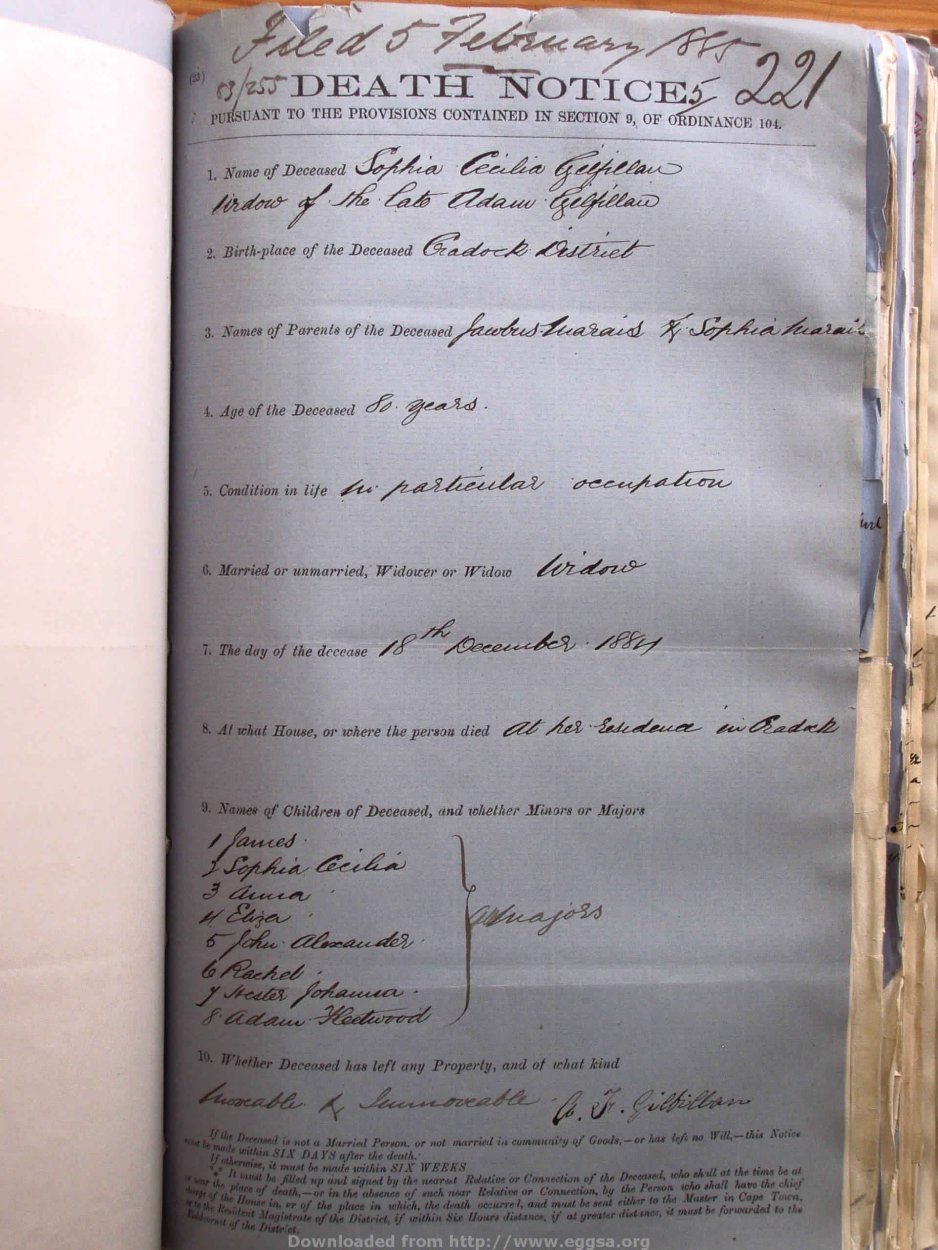 Filed 5 February 1885
(23) 83/255 DEATH NOTICE 5 221
PURSUANT TO THE PROVISIONS CONTAINED IN SECTION 9, OF ORDINANCE 104.
1. Name of Deceased Sophia Cecilia Gilfillan
Widow of the late Adam Gilfillan
2. Birth-place of the Deceased Cradock District
3. Names of Parents of the Deceased Jacobus Marais & Sophia Marais
4. Age of the Deceased 80 years.
5. Condition in life No particular occupation
6. Married or unmarried, Widower or Widow Widow
7. The day of the decease 18th December 1884
8. At what House, or where the person died At her residence in Cradock
9. Names of Children of Deceased, and whether Minors or Majors
1 James
2 Sophia Cecilia
3 Anna
4 Eliza
All majors
5 John Alexander
6 Rachel
7 Hester Johanna
8 Adam Fleetwood
10. Whether Deceased has left any Property, and of what kind
Moveable & Immoveable A. F. Gilfillan
If the Deceased is not a Married Person, or not married in community of Goods,—or has left no Will,—this Notice
must be made within SIX DAYS after the death.
If otherwise, it must be made within SIX WEEKS
*** It must be filled up and signed by the nearest Relative or Connection of the Deceased, who shall at the time be at
or near the place of death,—or in the absence of such near Relative or Connection, by the Person who shall have the chief
charge of the House in, or of the place in which, the death occurred, and must be sent either to the Master in Cape Town,
or to the Resident Magistrate of the District, if within Six Hours distance, if at greater distance, it must be forwarded to the
Fieldcornet of the District.
Downloaded from http://www.eggsa.org